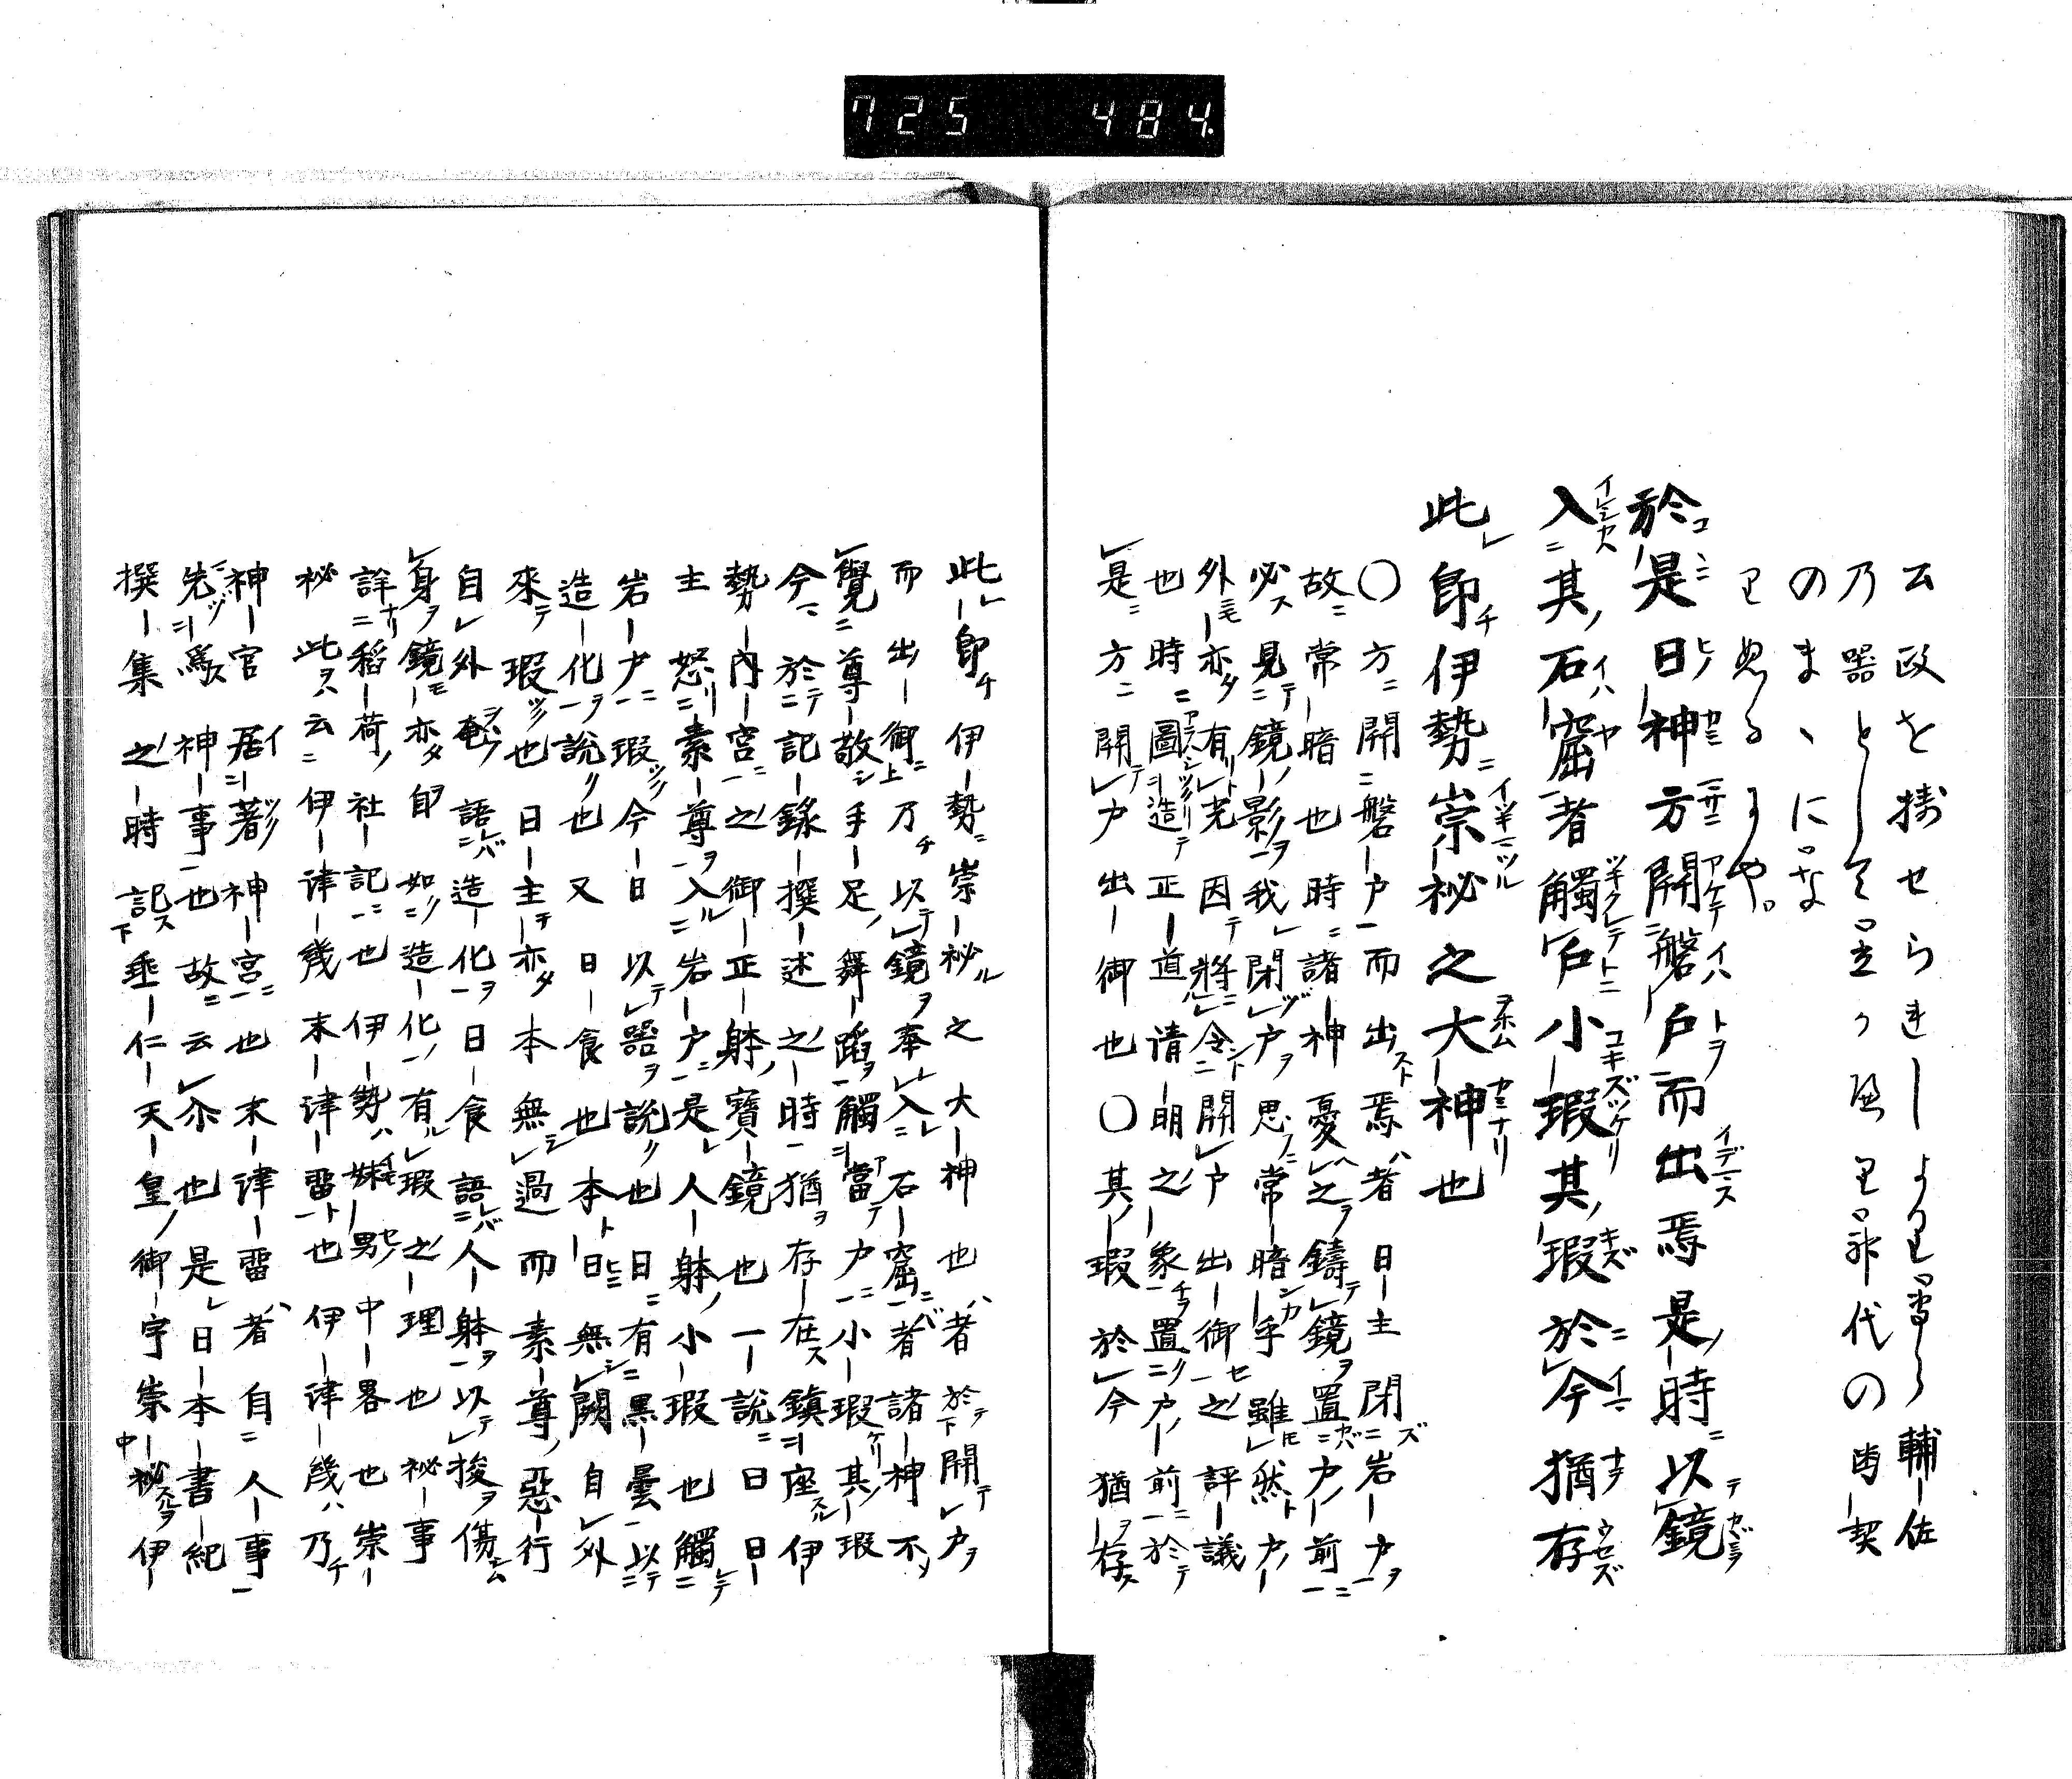 725 484
公政を掛せらきしより輔佐
乃器として神代の歯契
のまゝにな
於是日神方開磐戸而出焉是時以鏡
入其石窟者觸戸小瑕其瑕於今猶存
此即伊勢崇秘之大神也
〇方開磐戸而出焉者日主閉岩戸
故常暗也時諸神憂之鑄鏡置戸前
必見鏡影我閉戸思常暗乎雖然戸
外亦有光因將令開戸出御之評議
也時圖造正道请明之象置戸前於
是方開戸出御也〇其瑕於今猶存
此即伊勢崇秘之大神也者於開戸
而出御乃以鏡奉入石窟者諸神不
覺尊敬手足舞蹈觸當戸小瑕其瑕
今於記錄撰述之時猶存在鎮座伊
勢內宮之御正躰寶鏡也一說曰日
主怒素尊入岩戸是人躰小瑕也觸
岩戸瑕今日以器說也日有黒曇以
造化說也又日食也本日無闕自外
來瑕也日主亦本無過而素尊惡行
自外奄語造化日食語人躰以梭傷
身鏡亦即如造化有瑕之理也秘事
詳稻荷社記也伊勢妹男中畧也崇
秘此云伊津幾末津畱也伊津幾乃
神官居著神宮也末津畱者自人事
先爲神事也故云尒也是日本書紀
撰集之時記垂仁天皇御宇崇秘伊